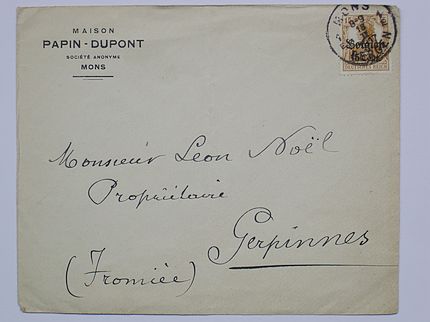 MAISON
PAPIN - DUPONT
SOCIÉTÉ ANONYME
MONS
MONS
8-9
Belgien
DEUTSCHES REICH
Monsieur Leon Noël
Propriétaire
Gerpinnes
(Fromiée)